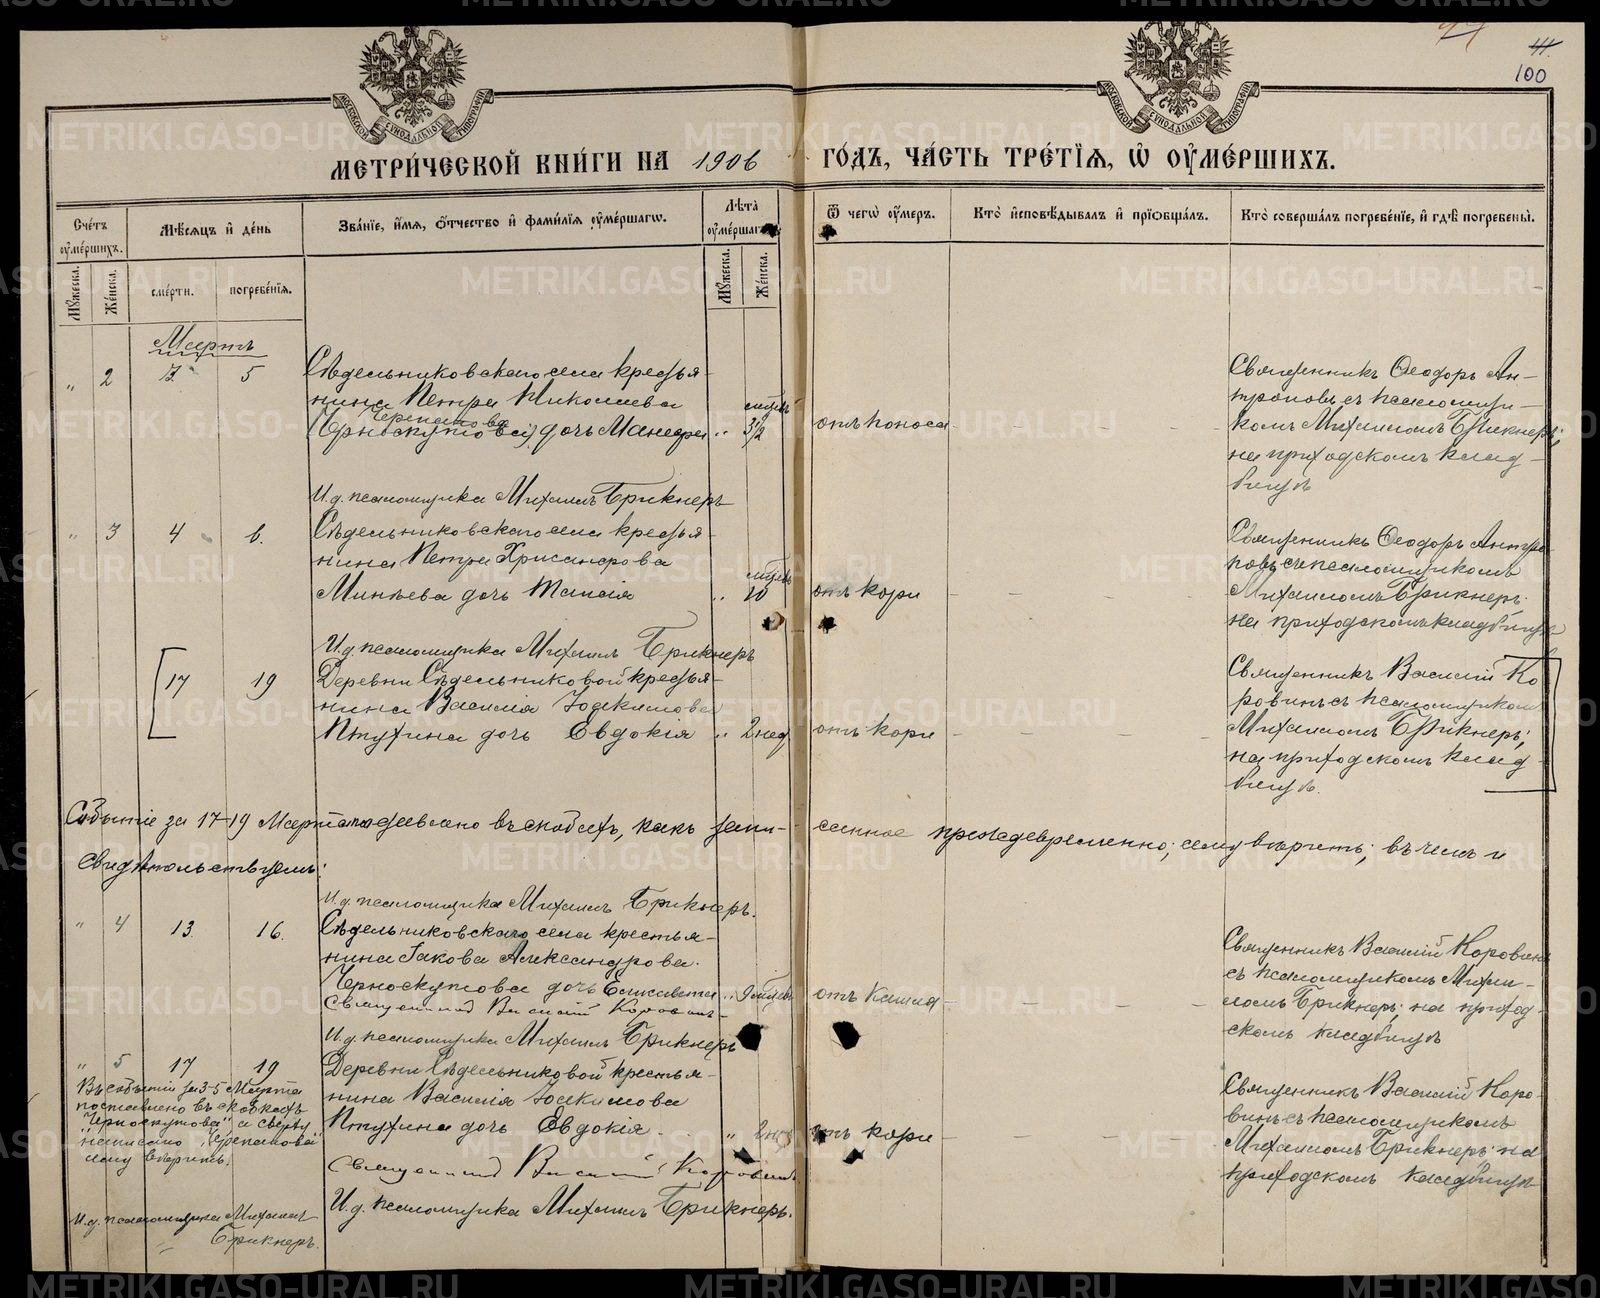 44
100
МОСКОВСКОЙ СѴНОДАЛЬНОЙ ТИПОГРАФІИ
МОСКОВСКОЙ СѴНОДАЛЬНОЙ ТИПОГРАФІИ
МЕТРИ́ЧЕСКОЙ КНИ́ГИ НА 1906 ГО́ДЪ, ЧА́СТЬ ТРЕ́ТІѦ, Ѡ҆ ОУ҆МЕ́РШИХЪ.
Сче́тъ оу҆ме́ршихъ.
Мꙋ́жеска.
Же́нска.
Мѣ́сѧцъ и҆ де́нь
сме́рти.
погребе́нїѧ.
Зва́нїе, и҆́мѧ, ѻ҆́тчество и҆ фами́лїѧ оу҆ме́ршагѡ.
Лѣ́та оу҆ме́ршагѡ
Мꙋ́жеска.
Же́нска.
Ѿ чегѡ̀ оу҆́меръ.
Кто̀ и҆сповѣ́дывалъ и҆ прїѡбща́лъ.
Кто̀ соверша́лъ погребе́нїе, и҆ гдѣ̀ погребены̀.
Мартъ
" 2 3 5
Сѣдельниковскаго села крестья-
нина Петра Николаева
Черепанова
(Черноскутова) дочь
" мѣсяц. 3½
отъ поноса
Священникъ Ѳеодоръ Ан-
троповъ съ псаломщи-
комъ Михаиломъ Брикнеръ;
на приходскомъ клад-
бищѣ
И.д. псаломщика Михаилъ Брикнеръ
" 3 4 6.
Сѣдельниковскаго села крестья-
нина Петра Хрисанфова
Минѣева дочь Таисія
" мѣсяц. 10
отъ кори
Священникъ Ѳеодоръ Антро-
повъ съ псаломщикомъ
Михаиломъ Брикнеръ;
на приходскомъ кладбищѣ
И.д. псаломщика Михаилъ Брикнеръ
17 19
Деревни Сѣдельниковой крестья-
нина Василія Іоакимова
Птухина дочь Евдокія
" 2 нед
отъ кори
Священникъ Василій Ко-
ровинъ съ псаломщикомъ
Михаиломъ Брикнеръ;
на приходскомъ клад-
бищѣ.
Событіе за 17-19 Марта поставлено въ скобахъ, какъ запи-
санное преждевременно; сему вѣрить; въ чемъ и
свидѣтельствуемъ:
И.д. псаломщика Михаилъ Брикнеръ.
" 4 13. 16.
Сѣдельниковскаго села крестья-
нина Іакова Александрова.
Черноскутова дочь Елисавета
" 9 мѣсяц.
отъ кашля
Священникъ Василій Коровинъ
съ псаломщикомъ Миха-
иломъ Брикнеръ; на приход-
скомъ кладбищѣ
Священникъ Василій Коровинъ
И.д. псаломщика Михаилъ Брикнеръ
" 5 17 19
Деревни Сѣдельниковой крестья-
нина Василія Іоакимова
Птухина дочь Евдокія
" 2 нед
отъ кори
Священникъ Василій Коро-
винъ съ псаломщикомъ
Михаиломъ Брикнеръ на
приходскомъ кладбищѣ
Въ событіи за 3-5 Марта
поставлено въ скобкахъ
"Черноскутова" а сверху
написано "Черепанова"
сему вѣрить.
Священникъ Василій Коровинъ
И.д. псаломщика Михаилъ Брикнеръ.
И.д. псаломщика Михаилъ
Брикнеръ.
METRIKI.GASO-URAL.RU